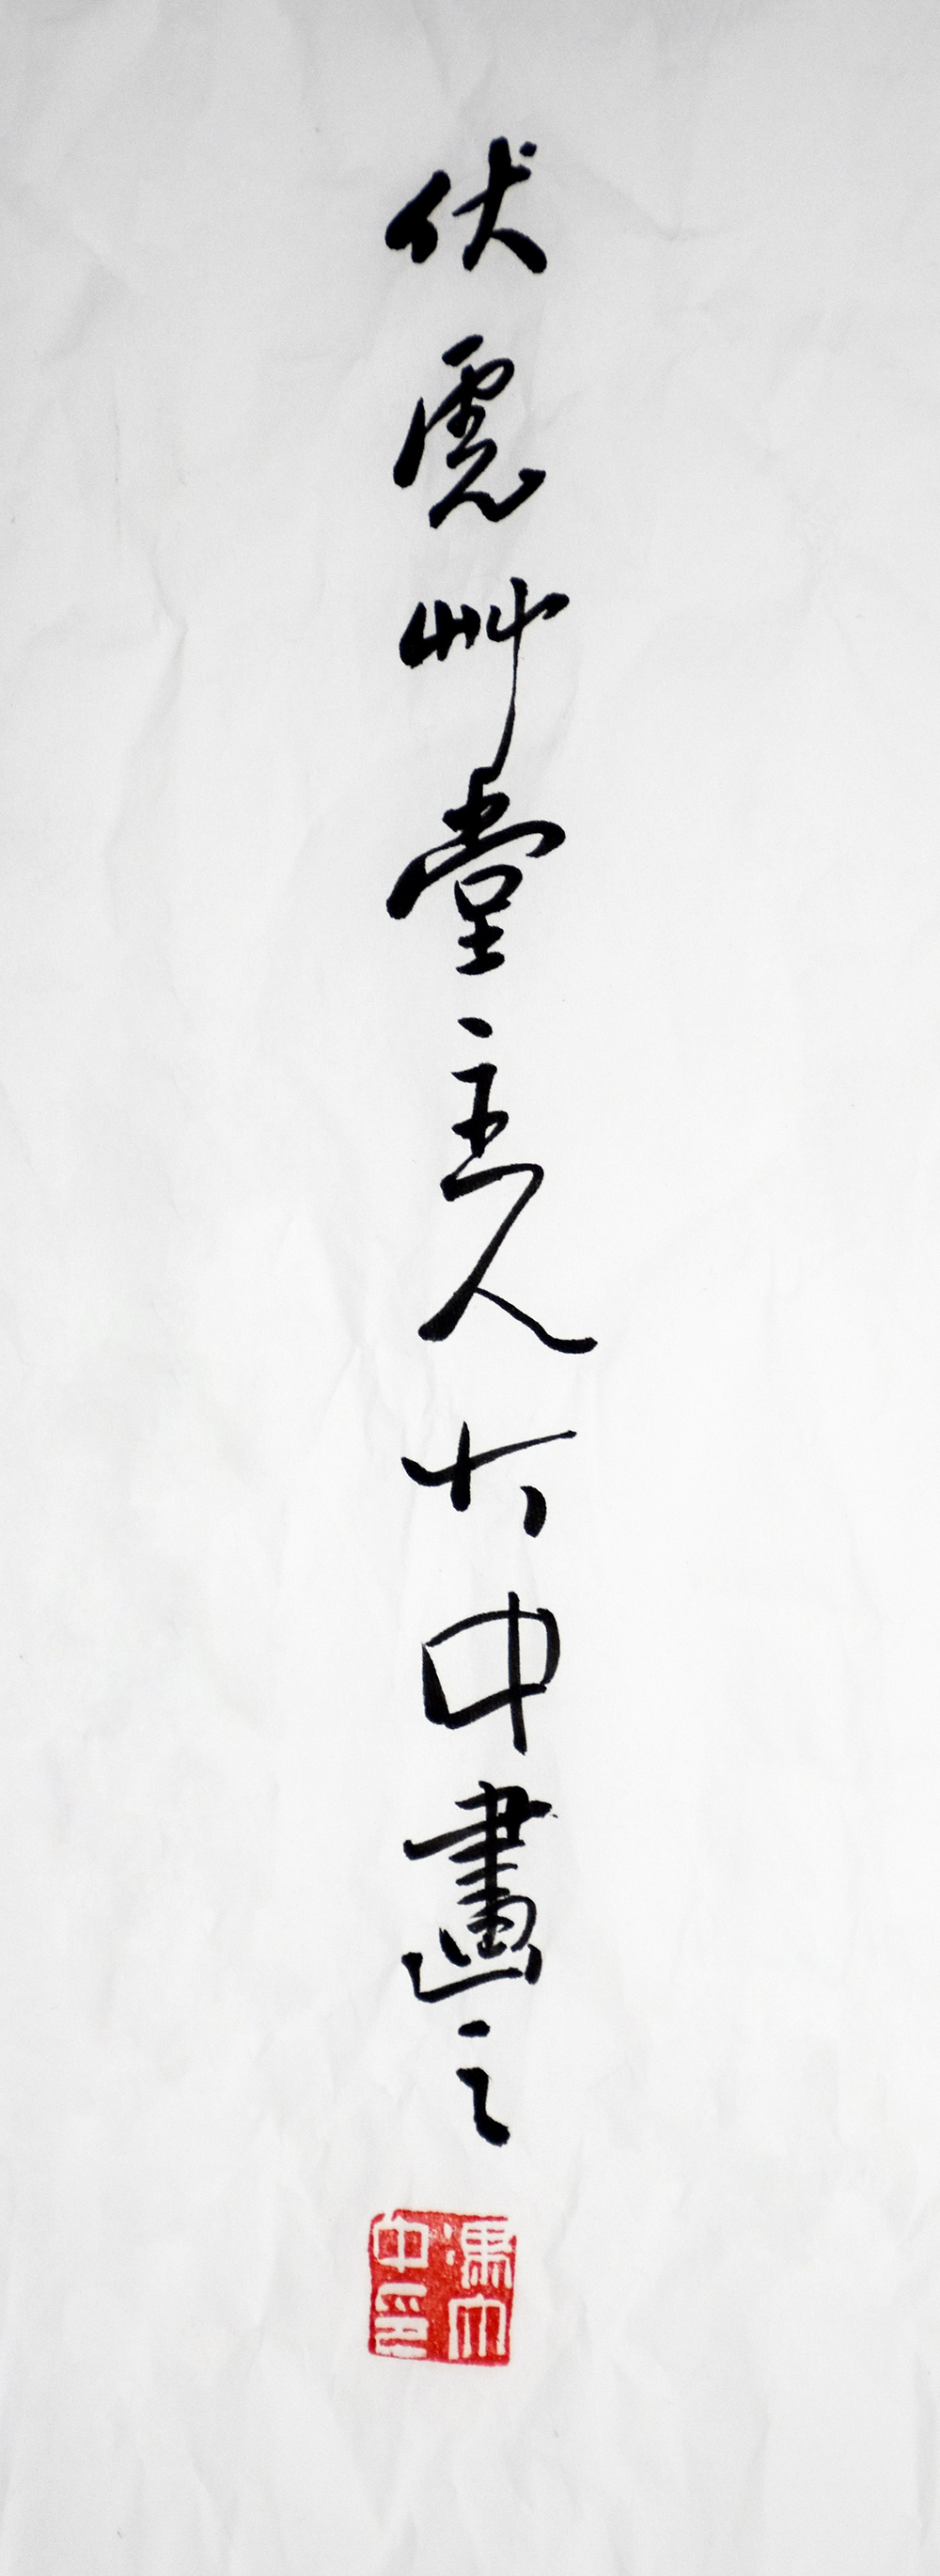 伏虎艸堂主人大中畫之
馮大中印